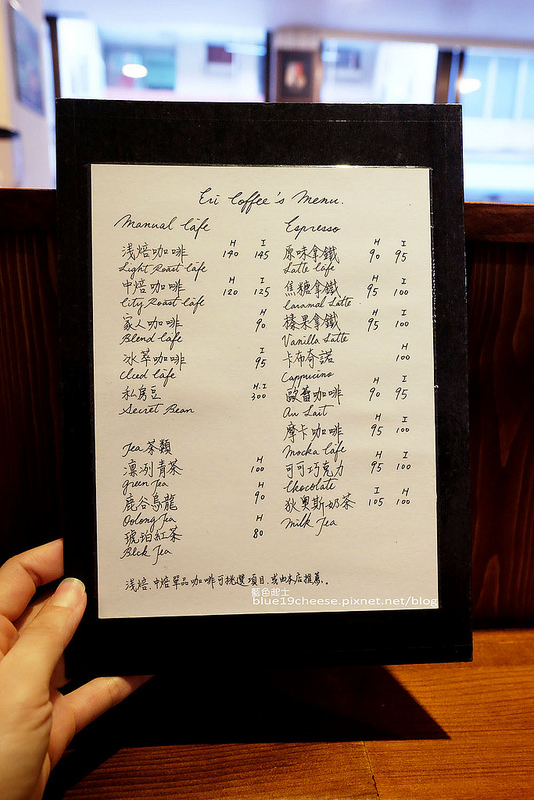 Eri Coffee's Menu.
Manual Cafe
H I
浅焙咖啡 140 145
Light Roast Cafe
H I
中焙咖啡 120 125
City Roast Cafe
H
家人咖啡 90
Blend Cafe
I
冰萃咖啡 95
Iced Cafe
H.I
私房豆 300
Secret Bean
Tea 茶類
H
凛冽青茶 100
Green Tea
H
鹿谷烏龍 90
Oolong Tea
H
琥珀紅茶 80
Blck Tea
Espresso
H I
原味拿鐵 90 95
Latte Cafe
H I
焦糖拿鐵 95 100
Caramal Latte
H I
榛果拿鐵 95 100
Vanilla Latte
H
卡布奇諾 100
Cappucino
H I
歐蕾咖啡 90 95
Au Lait
H I
摩卡咖啡 95 100
Mocka Cafe
H I
可可巧克力 95 100
Chocolate
I H
狄奧斯奶茶 105 100
Milk Tea
浅焙、中焙單品咖啡可挑選項目,或由本店推薦。
藍色起士
blue19cheese.pixnet.net/blog